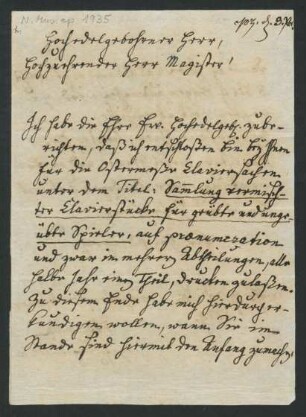 N. Mus. ep. 1935
Hochedelgebohrner Herr,
Hochzuehrender Herr Magister!
Ich habe die Ehre Ew. Hochedelgeb. zube-
richten, daß ich entschloßen bin
für die Ostermeße Claviersachen
unter dem Titel: Sammlung vermisch-
ter Clavierstücke für geübte und unge-
übte Spieler, auf pränumeration
und zwar in mehrern Abtheilungen, alle
halbe Jahr einen Theil, drucken zulaßen.
Zu diesem Ende habe mich hierdurch er-
kundigen wollen, wann Sie im
Stande sind hiermit den Anfang zumachen,